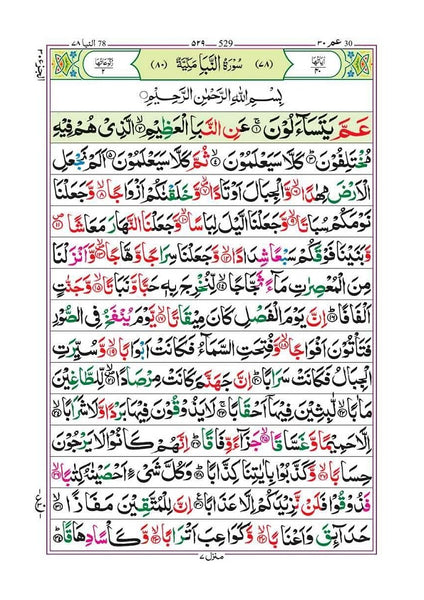 78 النبا ٧٨
529 ٥٢٩
30 عم ٣٠
اٰیاتها ٤٠
(٧٨) سُوْرَةُ النَّبَاِ مَكِّيَّةٌ (٨٠)
رکوعاتها ٢
بِسْمِ اللّٰهِ الرَّحْمٰنِ الرَّحِيْمِ
عَمَّ يَتَسَآءَلُوْنَ ۚ﴿۱﴾ عَنِ النَّبَاِ الْعَظِيْمِ ۙ﴿۲﴾ الَّذِيْ هُمْ فِيْهِ
مُخْتَلِفُوْنَ ؕ﴿۳﴾ كَلَّا سَيَعْلَمُوْنَ ۙ﴿۴﴾ ثُمَّ كَلَّا سَيَعْلَمُوْنَ ﴿۵﴾ اَلَمْ نَجْعَلِ
الْاَرْضَ مِهٰدًا ۙ﴿۶﴾ وَّالْجِبَالَ اَوْتَادًا ۪ۙ﴿۷﴾ وَّخَلَقْنٰكُمْ اَزْوَاجًا ۙ﴿۸﴾ وَّجَعَلْنَا
نَوْمَكُمْ سُبَاتًا ۙ﴿۹﴾ وَّجَعَلْنَا الَّيْلَ لِبَاسًا ۙ﴿۱۰﴾ وَّجَعَلْنَا النَّهَارَ مَعَاشًا ۪﴿۱۱﴾
وَّبَنَيْنَا فَوْقَكُمْ سَبْعًا شِدَادًا ۙ﴿۱۲﴾ وَّجَعَلْنَا سِرَاجًا وَّهَّاجًا ۪ۙ﴿۱۳﴾ وَّاَنْزَلْنَا
مِنَ الْمُعْصِرٰتِ مَآءً ثَجَّاجًا ۙ﴿۱۴﴾ لِّنُخْرِجَ بِهٖ حَبًّا وَّنَبَاتًا ۙ﴿۱۵﴾ وَّجَنّٰتٍ
اَلْفَافًا ؕ﴿۱۶﴾ اِنَّ يَوْمَ الْفَصْلِ كَانَ مِيْقَاتًا ۙ﴿۱۷﴾ يَّوْمَ يُنْفَخُ فِي الصُّوْرِ
فَتَاْتُوْنَ اَفْوَاجًا ۙ﴿۱۸﴾ وَّفُتِحَتِ السَّمَآءُ فَكَانَتْ اَبْوَابًا ۙ﴿۱۹﴾ وَّسُيِّرَتِ
الْجِبَالُ فَكَانَتْ سَرَابًا ؕ﴿۲۰﴾ اِنَّ جَهَنَّمَ كَانَتْ مِرْصَادًا ۪ۙ﴿۲۱﴾ لِّلطَّاغِيْنَ
مَاٰبًا ۙ﴿۲۲﴾ لّٰبِثِيْنَ فِيْهَاۤ اَحْقَابًا ۚ﴿۲۳﴾ لَا يَذُوْقُوْنَ فِيْهَا بَرْدًا وَّلَا شَرَابًا ۙ﴿۲۴﴾
اِلَّا حَمِيْمًا وَّغَسَّاقًا ۙ﴿۲۵﴾ جَزَآءً وِّفَاقًا ؕ﴿۲۶﴾ اِنَّهُمْ كَانُوْا لَا يَرْجُوْنَ
حِسَابًا ۙ﴿۲۷﴾ وَّكَذَّبُوْا بِاٰيٰتِنَا كِذَّابًا ؕ﴿۲۸﴾ وَكُلَّ شَيْءٍ اَحْصَيْنٰهُ كِتٰبًا ۙ﴿۲۹﴾
فَذُوْقُوْا فَلَنْ نَّزِيْدَكُمْ اِلَّا عَذَابًا ﴿۳۰﴾ اِنَّ لِلْمُتَّقِيْنَ مَفَازًا ۙ﴿۳۱﴾
حَدَآئِقَ وَاَعْنَابًا ۙ﴿۳۲﴾ وَّكَوَاعِبَ اَتْرَابًا ۙ﴿۳۳﴾ وَّكَاْسًا دِهَاقًا ؕ﴿۳۴﴾
منزل ٧